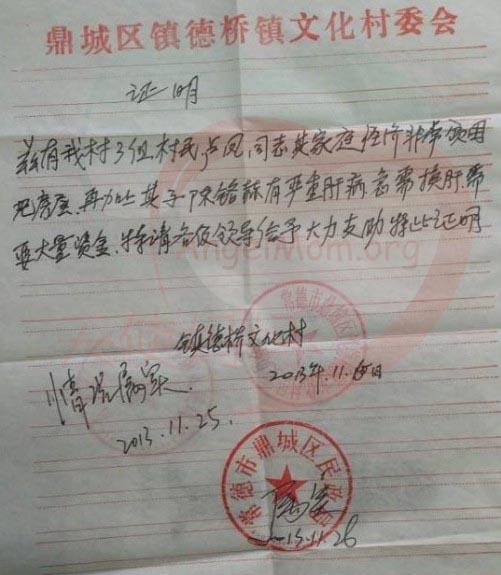 鼎城区镇德桥镇文化村委会
证明
兹有我村3组村民卢凤同志其家庭经济非常困
难房屋,再加上其子陈铭赫有严重肝病急需换肝,需
要大量资金,特请各级领导给予大力支助特此证明
AngelMom.org
镇德桥文化村
2013年.11.25日
情况属实.
2013.11.25.
常德市鼎城区民政局
属实
2013.11.26